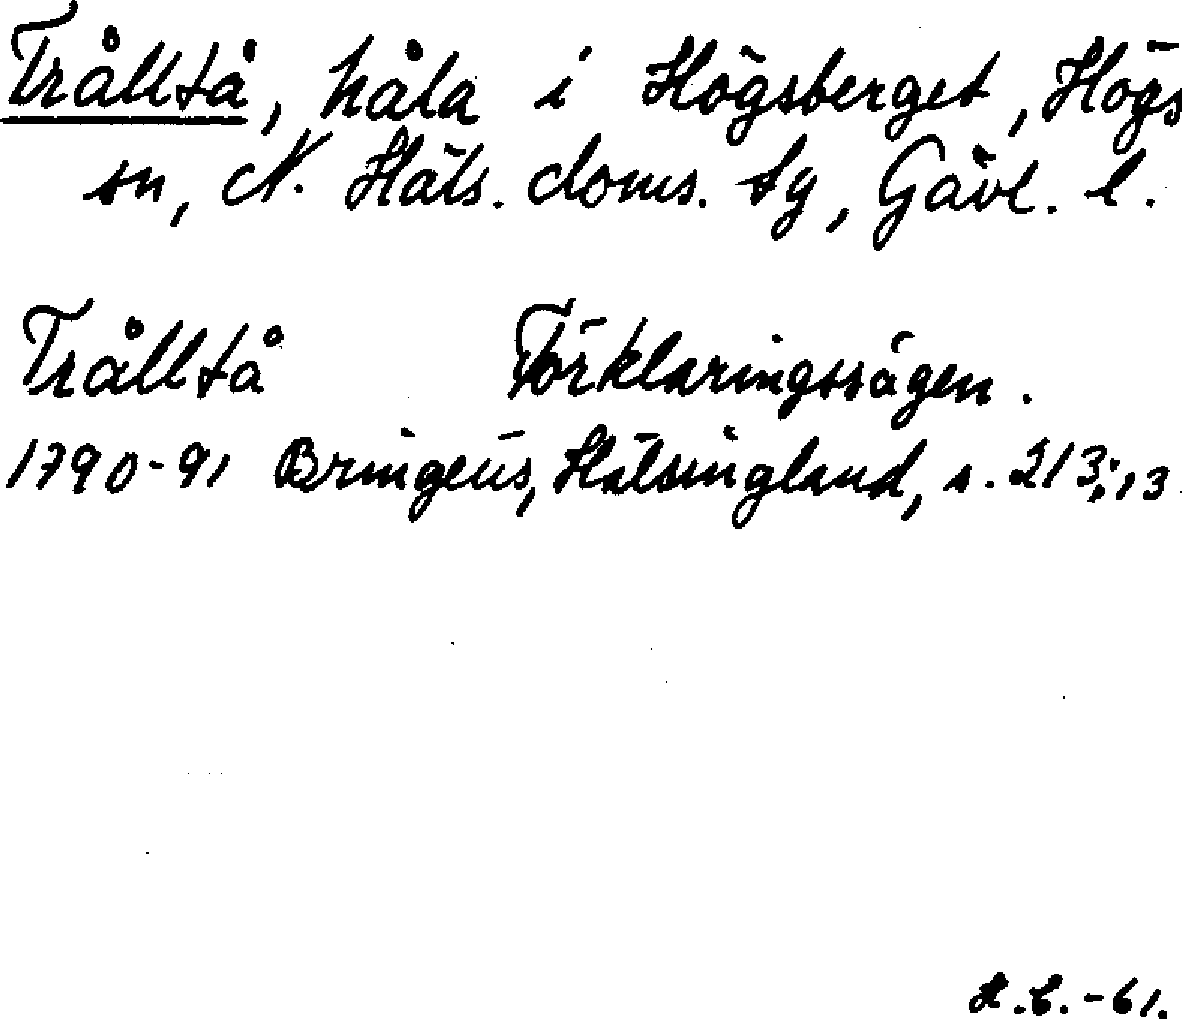 Trålltå, håla i Högsberget, Högs
sn, N. Häls. doms. tg, Gävl. l.
Trålltå Förklaringssägen.
1790-91 Bringéus, Hälsingland, s. 213; 13
H.C.-61.